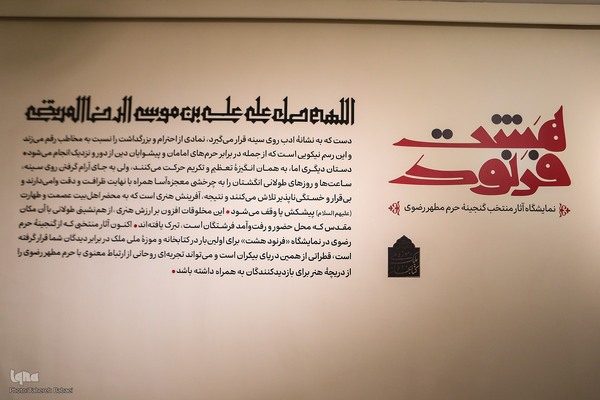 هشت
فرنود
نمایشگاه آثار منتخب گنجینهٔ حرم مطهر رضوی
اللهم صل علی علی بن موسی الرضا المرتضی
دست که به نشانهٔ ادب روی سینه قرار می‌گیرد، نمادی از احترام و بزرگداشت را نسبت به مخاطب رقم می‌زند
و این رسم نیکویی است که از جمله در برابر حرم‌های امامان و پیشوایان دین از دور و نزدیک انجام می‌شود•
دستان دیگری اما، به همان انگیزهٔ تعظیم و تکریم حرکت می‌کنند، ولی به جای آرام گرفتن روی سینه،
ساعت‌ها و روزهای طولانی انگشتان را به چرخشی معجزه‌آسا همراه با نهایت ظرافت و دقت وامی‌دارند و
بی‌قرار و خستگی‌ناپذیر تلاش می‌کنند و نتیجه، آفرینش هنری است که به محضر اهل‌بیت عصمت و طهارت
(علیهم السلام) پیشکش یا وقف می‌شود• این مخلوقات افزون بر ارزش هنری، از هم‌نشینی طولانی با آن مکان
مقدس که محل حضور و رفت‌وآمد فرشتگان است، تبرک یافته‌اند• اکنون آثار منتخبی که از گنجینهٔ حرم
رضوی در نمایشگاه «فرنود هشت» برای اولین‌بار در کتابخانه و موزهٔ ملی ملک در برابر دیدگان شما قرار گرفته
است، قطراتی از همین دریای بیکران است و می‌تواند تجربه‌ای روحانی از ارتباط معنوی با حرم مطهر رضوی را
از دریچهٔ هنر برای بازدیدکنندگان به همراه داشته باشد•
iqna
Photo: Tahereh Babaei